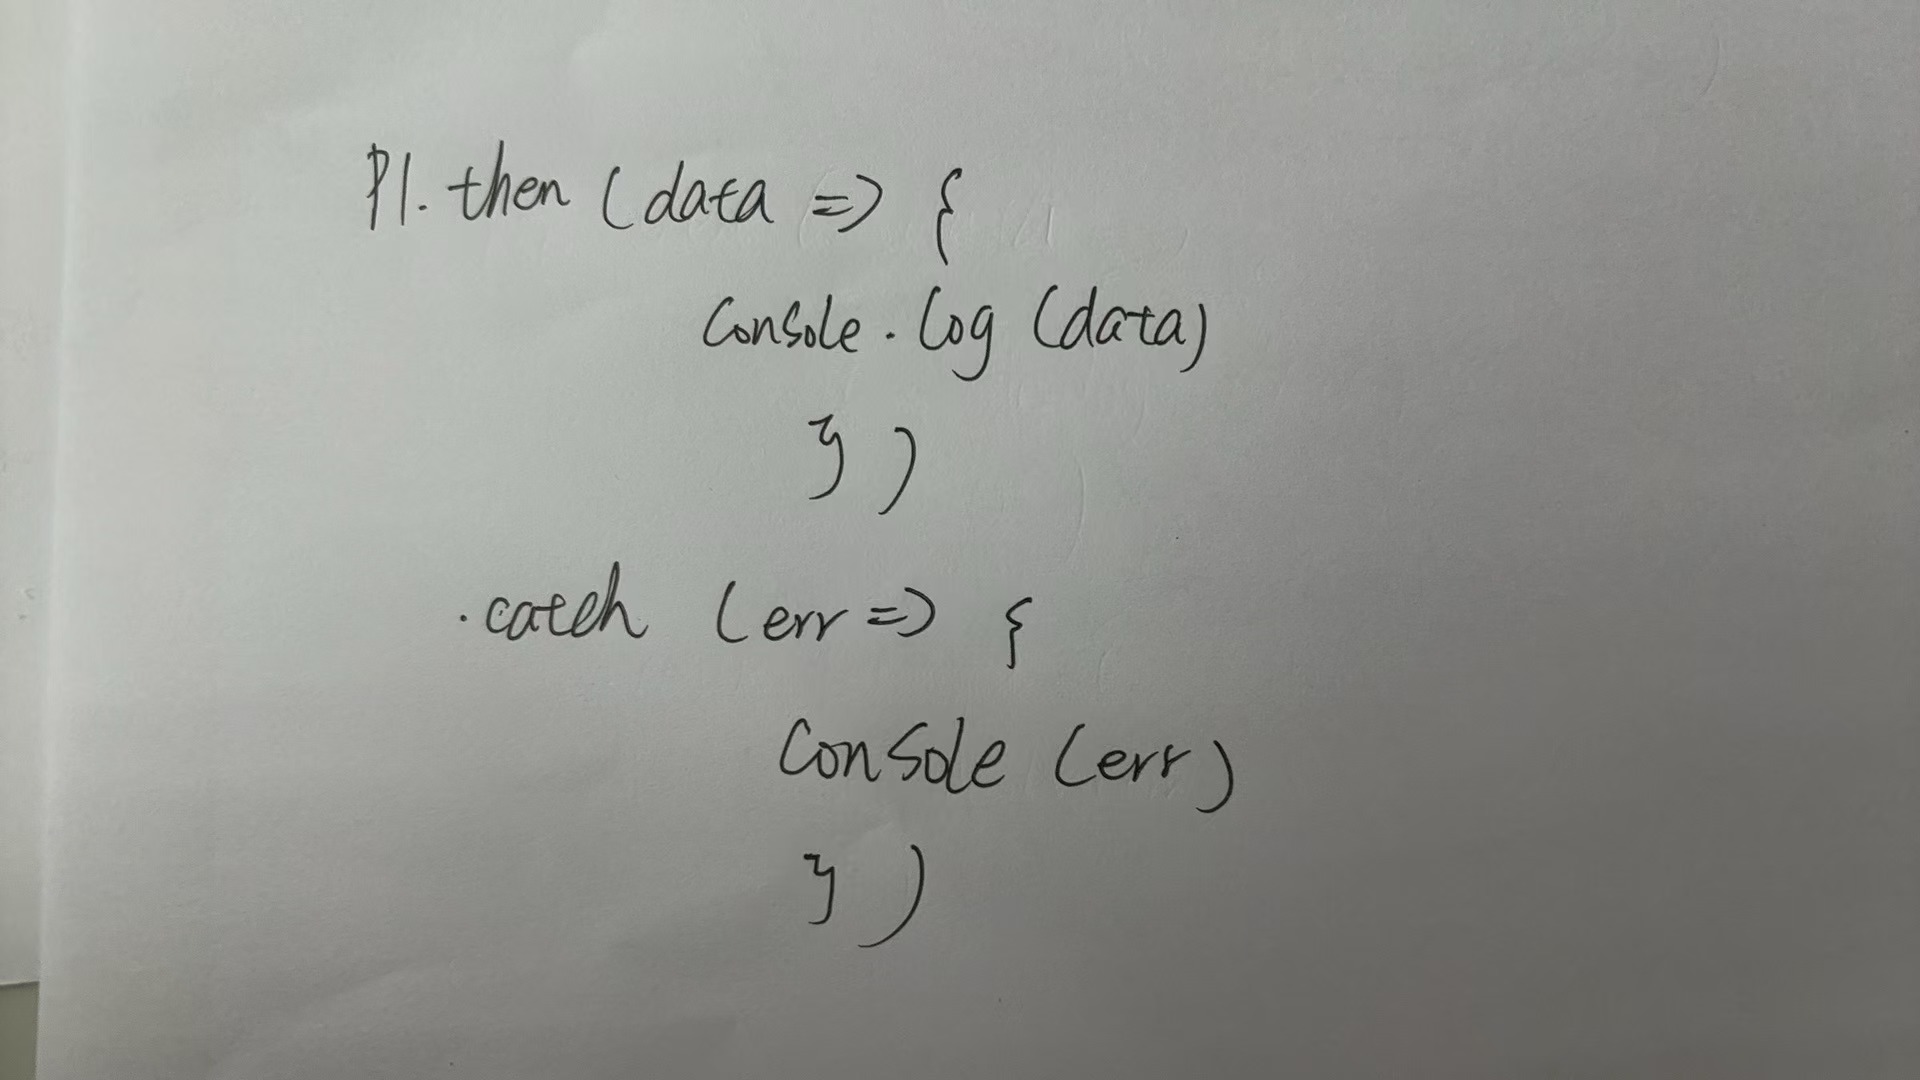 P1.then (data => {
console.log (data)
})
.catch (err => {
console (err)
})